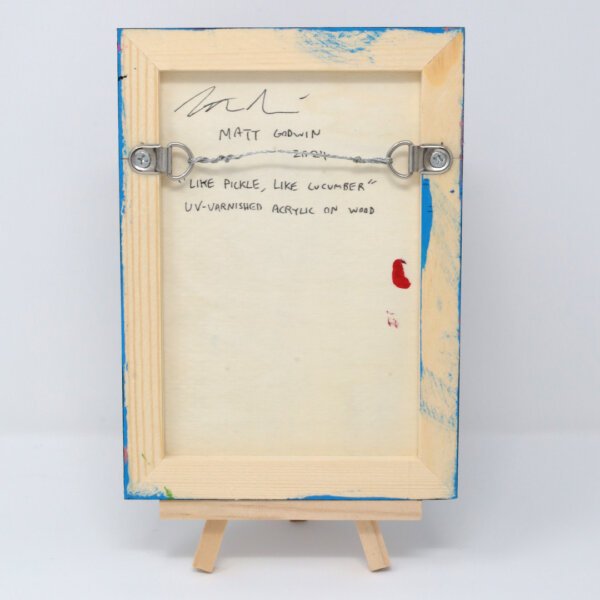 MATT GODWIN
2024
"LIKE PICKLE, LIKE CUCUMBER"
UV-VARNISHED ACRYLIC ON WOOD